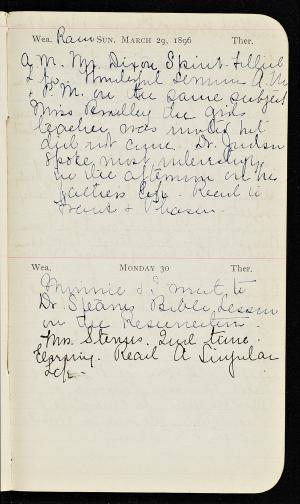 Wea. Rain SUN. MARCH 29, 1896 Ther.
A.M. Mr. Dixon Spirit filled
Life. Wonderful Sermon A.M
& P.M. on the same subject
Miss Bradley the
teacher was invited but
did not come. Dr. Judson
spoke most interestingly
in the afternoon on his
father's life. Read in
Wea. MONDAY 30 Ther.
Minnie & I went to
Dr. Stearns Bible Lesson
on the Resurrection.
Mrs. Stearns. 2nd time.
Read A Singular
Life